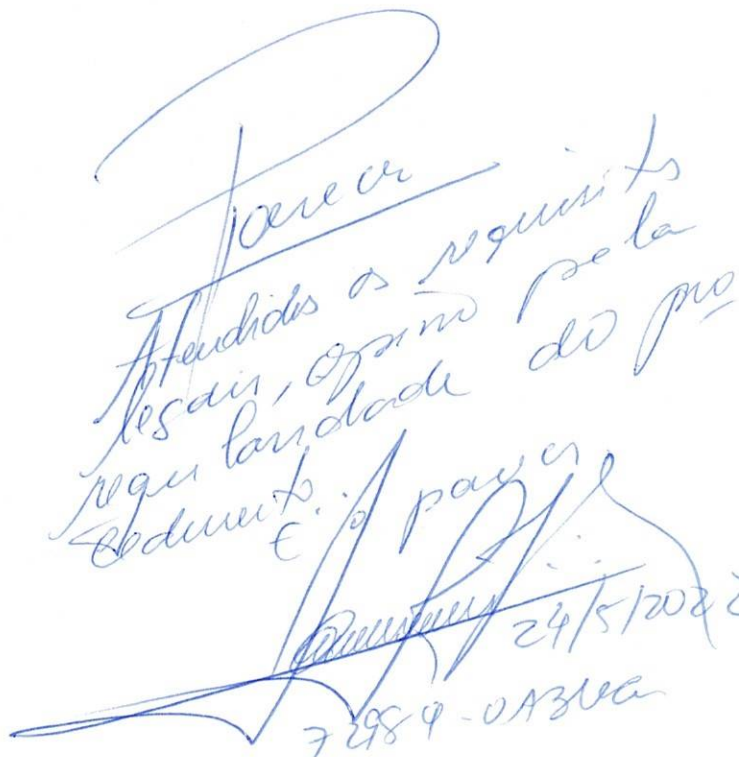 Parecer
Atendidos os requisitos
legais, opino pela
regularidade do pro
cedimento.
É o parecer
24/5/2022